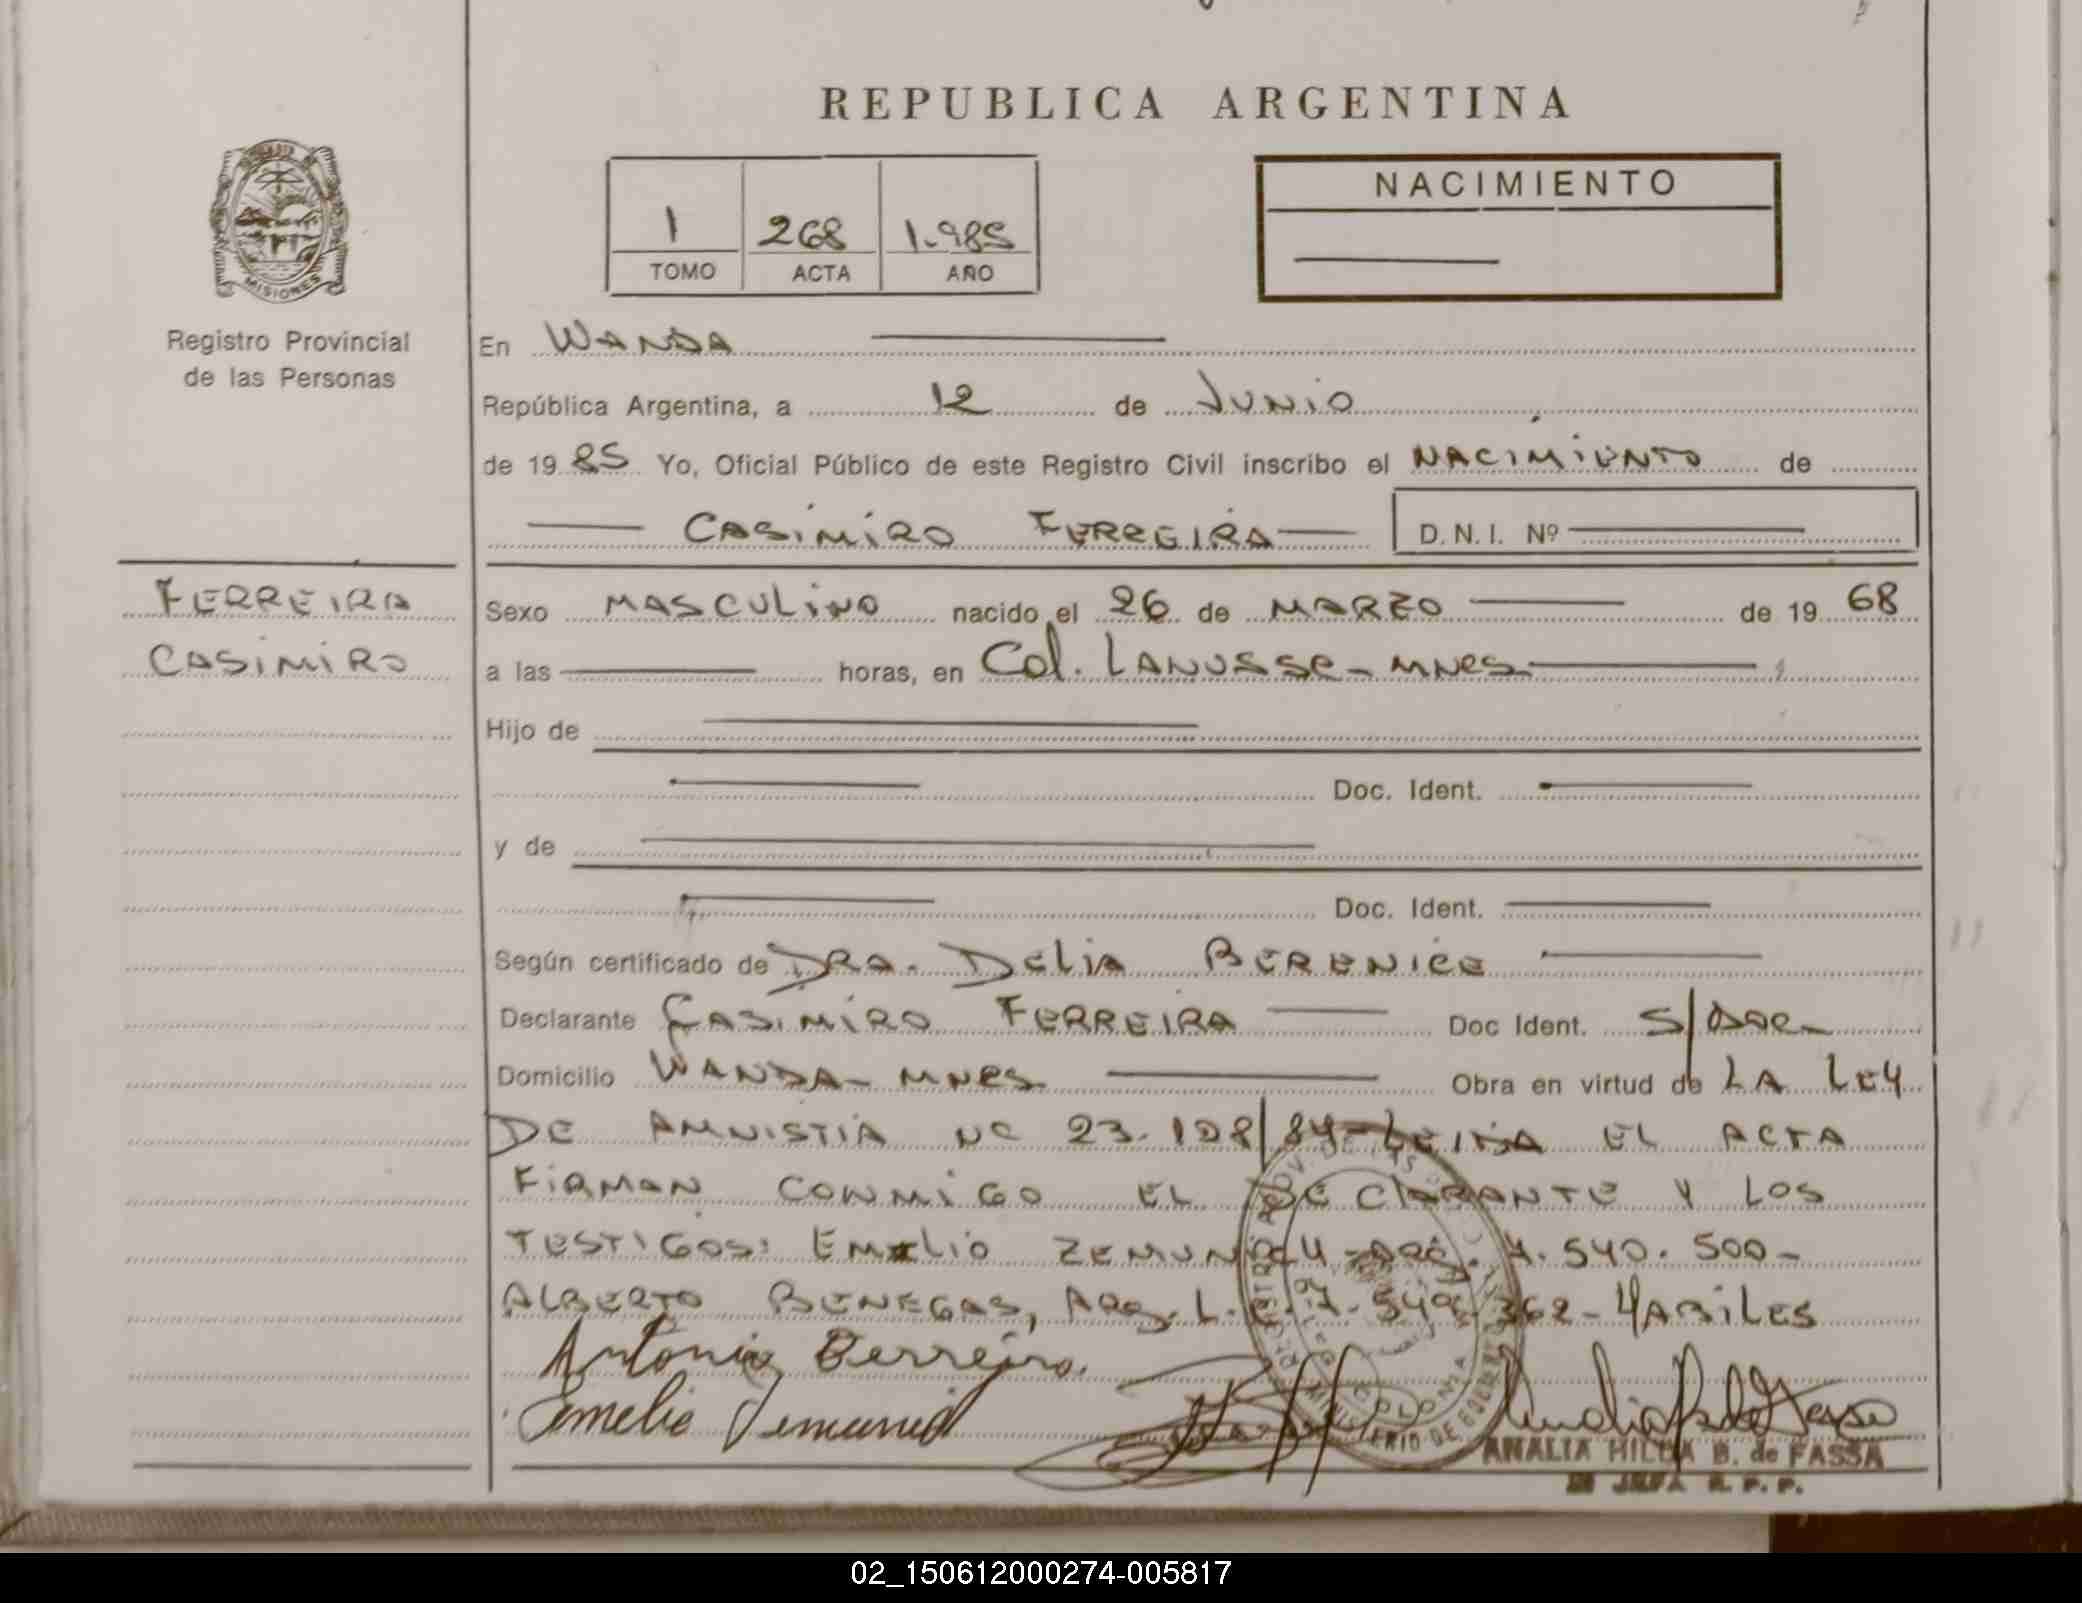 REPUBLICA ARGENTINA
MISIONES
Registro Provincial
de las Personas
1 268 1.985
TOMO ACTA AÑO
NACIMIENTO
En WANDA
República Argentina, a 12 de JUNIO
de 19 85 Yo, Oficial Público de este Registro Civil inscribo el NACIMIENTO de
CASIMIRO FERREIRA D.N.I. Nº
FERREIRA
CASIMIRO
Sexo MASCULINO nacido el 26 de MARZO de 19 68
a las horas, en Col. LANUSSE - MNES
Hijo de
Doc. Ident.
y de
Doc. Ident.
Según certificado de DRA. DELIA BERENICE
Declarante CASIMIRO FERREIRA Doc Ident. S/DOC-
Domicilio WANDA - MNES Obra en virtud de LA LEY
DE AMNISTIA Nº 23.108/84 - LEIDA EL ACTA
FIRMAN CONMIGO EL DECLARANTE Y LOS
TESTIGOS: EMILIO ARG. 7.540.500-
ALBERTO BENEGAS, ARG. L. 362 - HABILES
Antonio Berreiro.
ANALIA HILDA B. de FASSA
JEFA R. P. P.
02_150612000274-005817